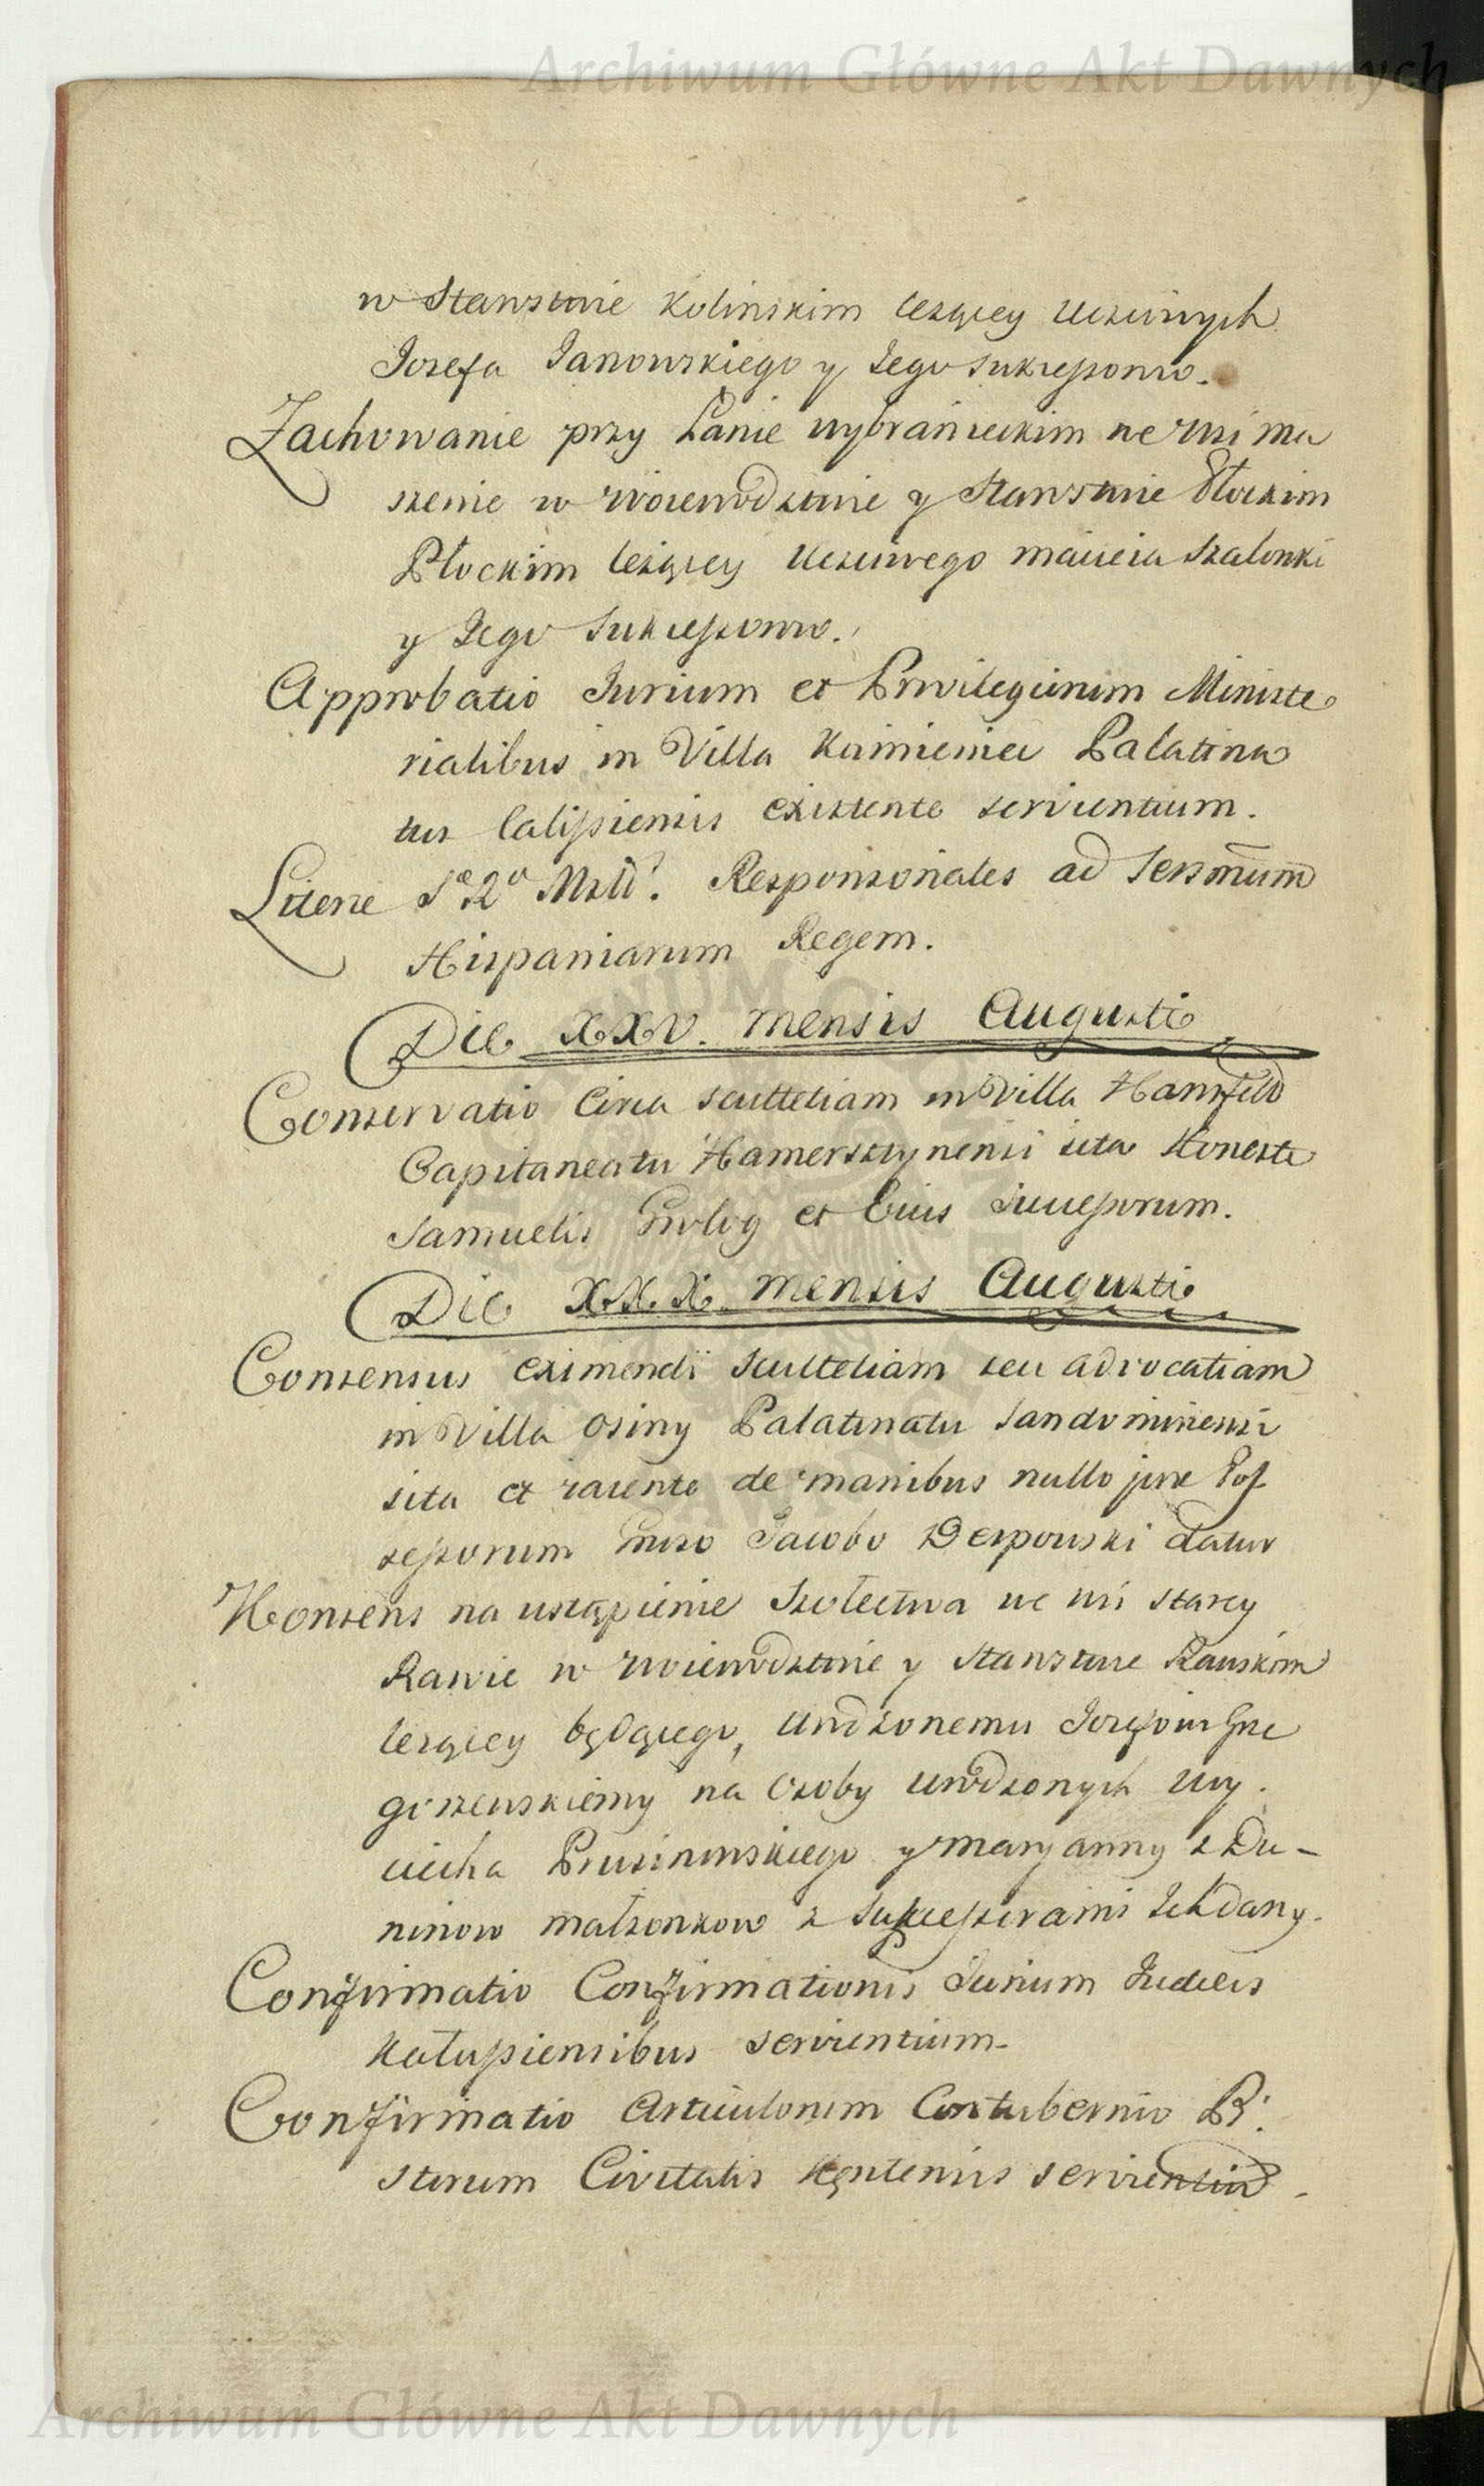 Archiwum Główne Akt Dawnych
w Starostwie Kolinskim lezącey Uczciwych
Jozefa Janowskiego y Jego Sukcessorow.
Zachowanie przy Łanie wybranieckim we wsi Ma
szenie w Woiewodztwie y Starostwie Płockim
Płockim leżącey Uczciwego Macieia Szalonki
y Jego Sukcessorow.
Approbatio Jurium et Privilegiorum Ministe
rialibus in Villa Kamieniec Palatina
tus Calissiensis existente servientium.
Literæ Responsoriales ad Serssmum
Hispaniarum Regem.
Die XXV. mensis Augusti
Conservatio Circa Scultetiam in Villa Hansfeld
Capitaneatu Hamersztynensi sita Honeste
Samuelis et Eius Successorum.
Die XXX. mensis Augusti
Consensus eximendi Scultetiam seu advocatiam
in Villa Osiny Palatinatu Sandomiriensi
sita et iacente de manibus nullo jure Pos
sessorum Gnroso Jacobo Derpowski datur
Konsens na ustąpienie Szołectwa we wsi Starey
Rawie w Woiewodztwie y Starostwie Rawskim
lezącey będącego, Urodzonemu Jozefowi Grze
gorzewskiemy na Osoby Urodzonych Woy.
ciecha Prusinowskiego y Maryanny z Du-
ninow małzonkow z Sukcessorami Ich dany.
Confirmatio Confirmationis Jurium Judæis
Kałussiensibus servientium.
Confirmatio Articulorum Contubernio Pi.
storum Civitatis Kęntensis servientiu.
Archiwum Główne Akt Dawnych